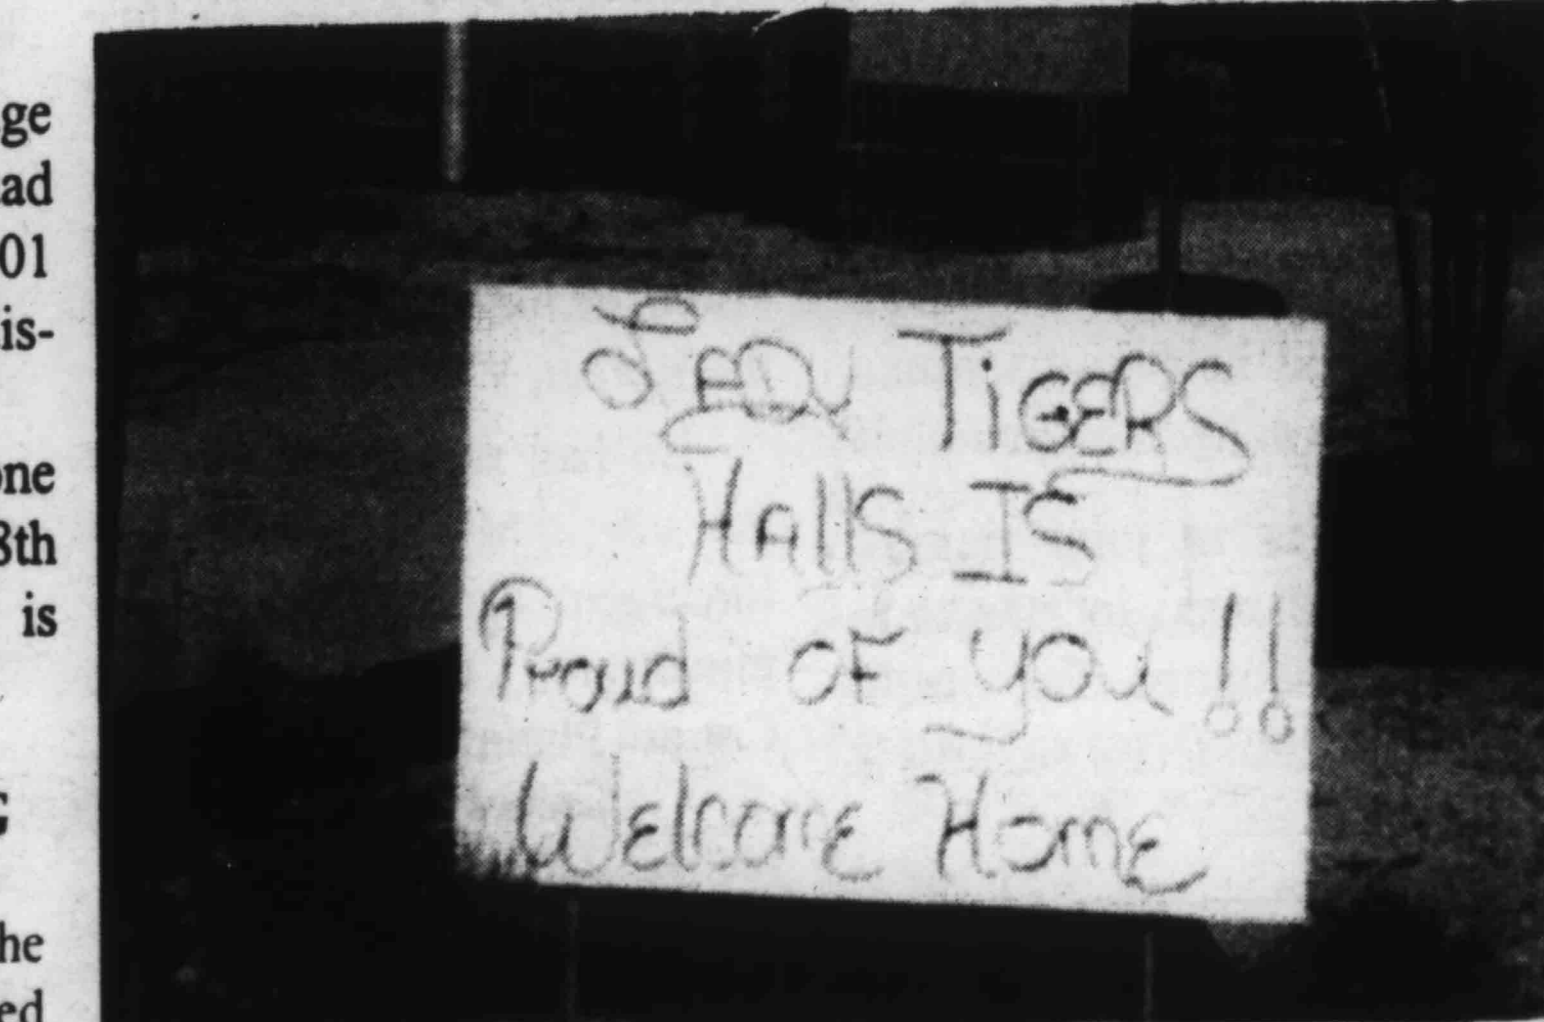 ge
ad
01
is-
one
8th
is
G
he
ed
LADY TIGERS
HAllS IS
Proud OF you!!
WElcomE HomE